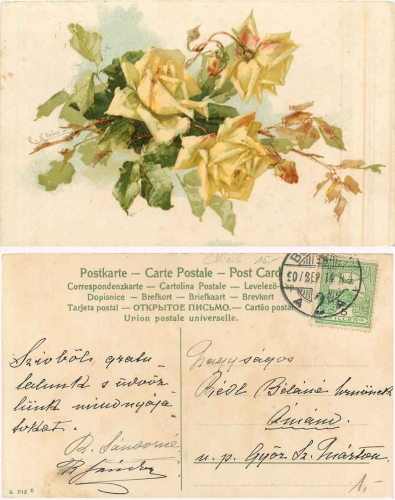 C. Klein
C. Klein 15-
Postkarte – Carte Postale – Post Card
Correspondenzkarte – Cartolina Postale – Levelező-Lap
Dopisnice – Brefkort – Briefkaart – Brevkort
Tarjeta postal – ОТКРЫТОЕ ПИСЬМО. – Cartão postal
Union postale universelle.
Szivből gratu-
lálunk s üdvöz-
lünk mindnyájá-
tokat.
R. Sándorné
R. Sándor
Nagyságos
Riedl Béláné urnőnek
u. p. Győr Sz. Márton.
1.-
S. 212 6